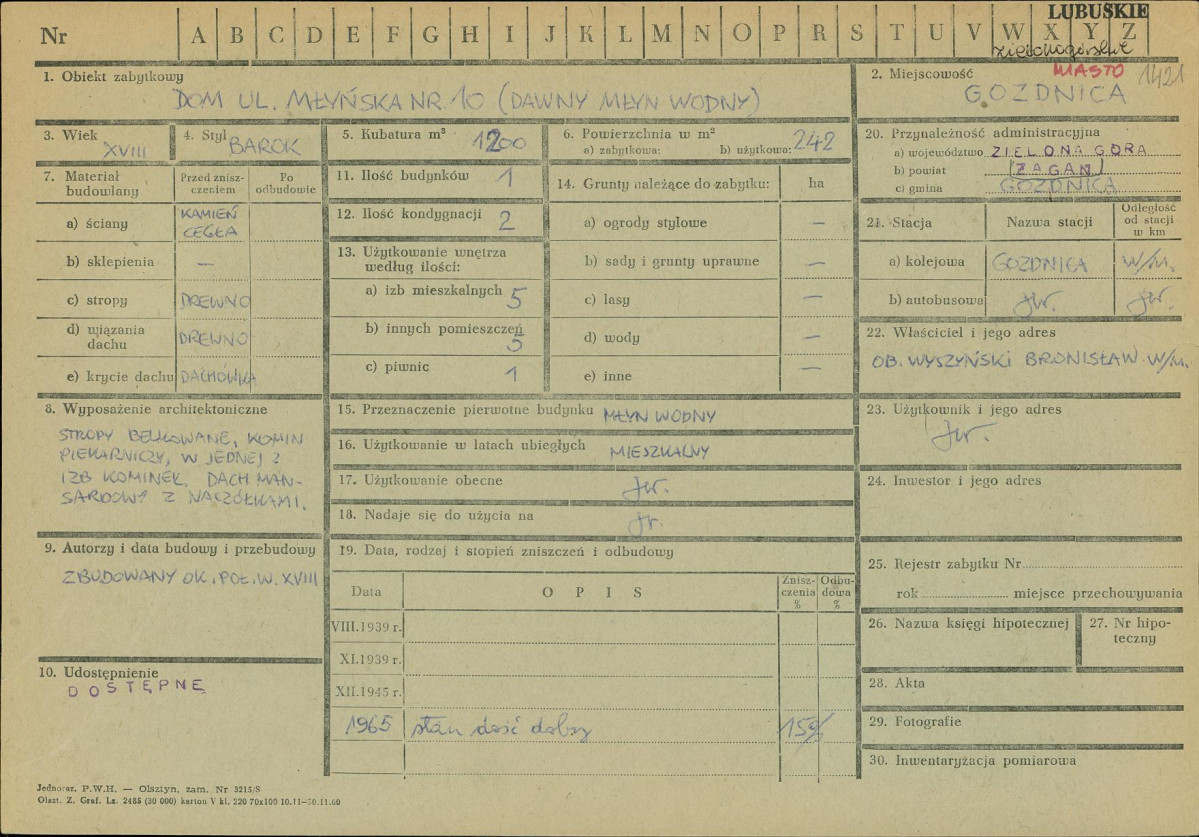 LUBUSKIE
Nr A B C D E F G H I J K L M N O P R S T U V W X Y Z
zielonogórskie
1. Obiekt zabytkowy
DOM UL. MŁYŃSKA NR 10 (DAWNY MŁYN WODNY)
2. Miejscowość MIASTO 1421
GOZDNICA
3. Wiek
XVIII
4. Styl BAROK
5. Kubatura m³ 1200
6. Powierzchnia w m²
a) zabytkowa: b) użytkowa: 242
7. Materiał budowlany
Przed zniszczeniem
Po odbudowie
a) ściany KAMIEŃ
CEGŁA
b) sklepienia —
c) stropy DREWNO
d) wiązania dachu DREWNO
e) krycie dachu DACHÓWKA
8. Wyposażenie architektoniczne
STROPY BELKOWANE, KOMIN
PIEKARNICZY, W JEDNEJ Z
IZB KOMINEK. DACH MAN-
SARDOWY Z NACZÓŁKAMI.
9. Autorzy i data budowy i przebudowy
ZBUDOWANY OK. POŁ. W. XVIII
10. Udostępnienie
DOSTĘPNE
11. Ilość budynków 1
12. Ilość kondygnacji 2
13. Użytkowanie wnętrza
według ilości:
a) izb mieszkalnych 5
b) innych pomieszczeń
5
c) piwnic 1
14. Grunty należące do zabytku: ha
a) ogrody stylowe —
b) sady i grunty uprawne —
c) lasy —
d) wody —
e) inne —
15. Przeznaczenie pierwotne budynku MŁYN WODNY
16. Użytkowanie w latach ubiegłych MIESZKALNY
17. Użytkowanie obecne jw.
18. Nadaje się do użycia na jw.
19. Data, rodzaj i stopień zniszczeń i odbudowy
Data OPIS Zniszczenia % Odbudowa %
VIII.1939 r.
XI.1939 r.
XII.1945 r.
1965 stan dość dobry 15%
20. Przynależność administracyjna
a) województwo ZIELONA GÓRA
b) powiat ŻAGAŃ
c) gmina GOZDNICA
21. Stacja Nazwa stacji Odległość od stacji w km
a) kolejowa GOZDNICA W/M.
b) autobusowa jw. jw.
22. Właściciel i jego adres
OB. WYSZYŃSKI BRONISŁAW W/M.
23. Użytkownik i jego adres
jw.
24. Inwestor i jego adres
25. Rejestr zabytku Nr
rok miejsce przechowywania
26. Nazwa księgi hipotecznej
27. Nr hipo-
teczny
28. Akta
29. Fotografie
30. Inwentaryzacja pomiarowa
Jednoraz. P.W.H. — Olsztyn, zam. Nr 3215/S
Olszt. Z. Graf. Lz. 2485 (30 000) karton V kl. 220 70x100 10.11—30.11.60